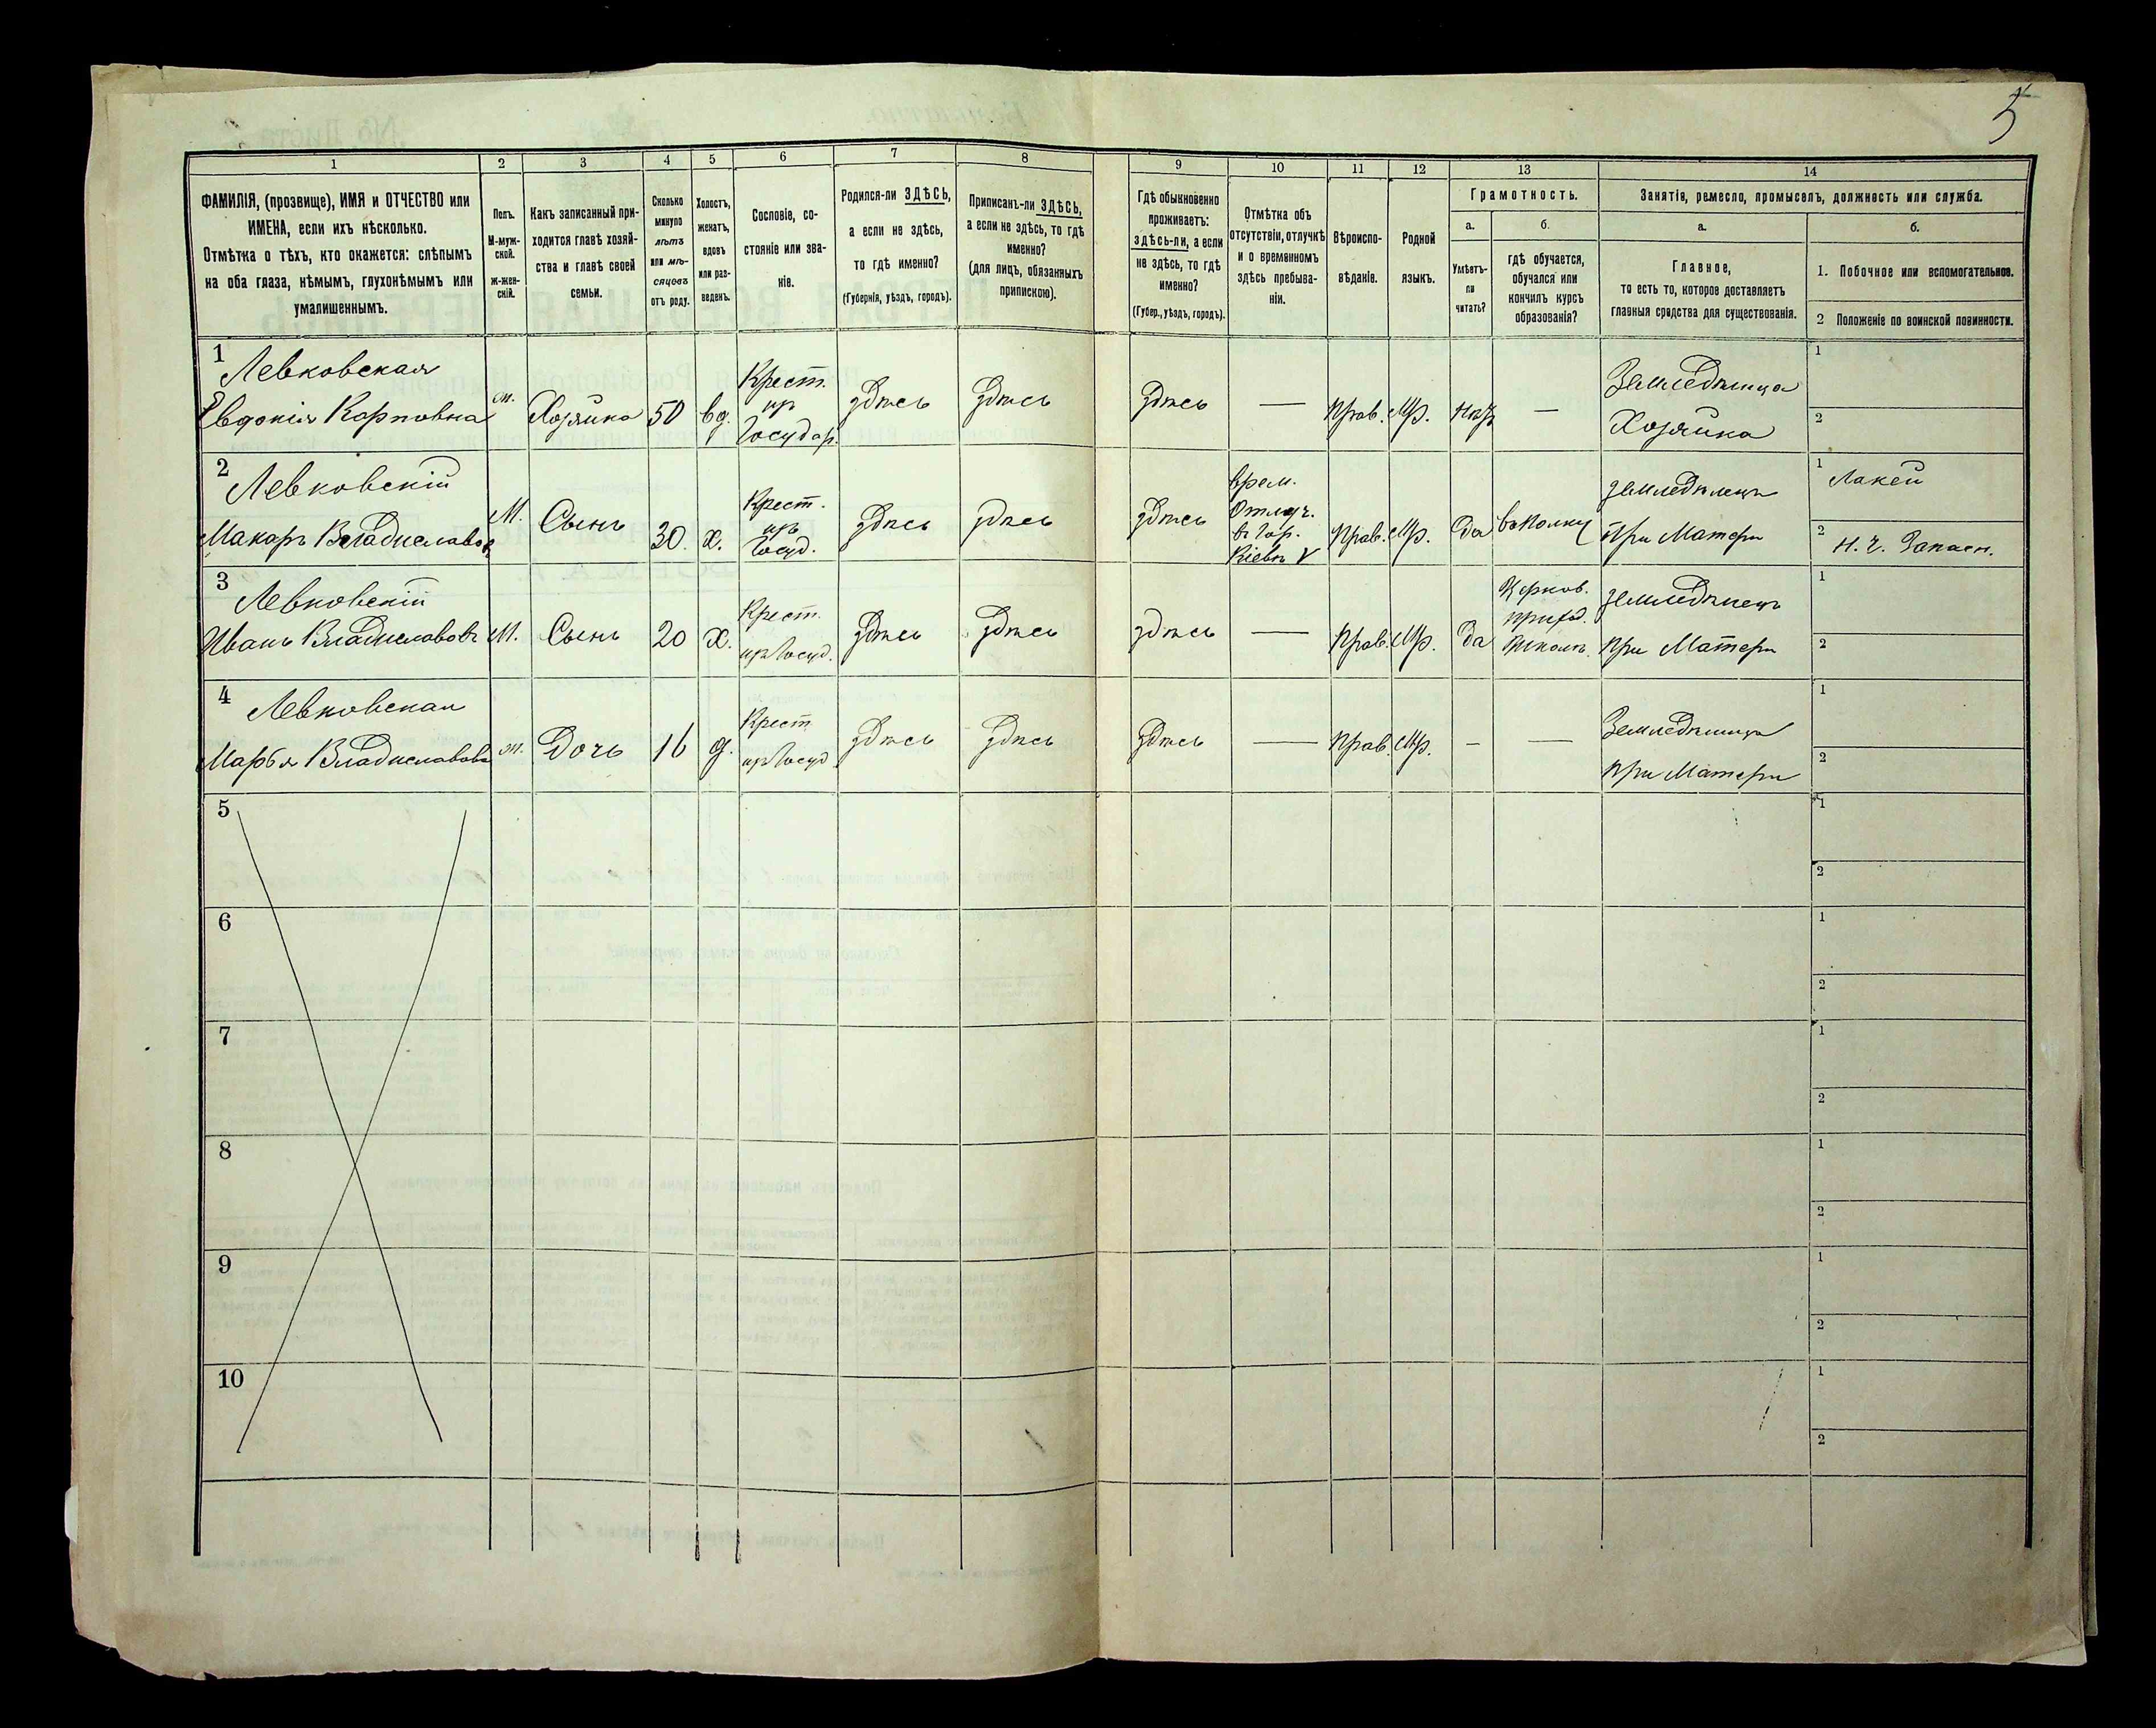 5
1
2
3
4
5
6
7
8
9
10
11
12
13
14
ФАМИЛІЯ, (прозвище), ИМЯ и ОТЧЕСТВО или
ИМЕНА, если ихъ нѣсколько.
Отмѣтка о тѣхъ, кто окажется: слѣпымъ
на оба глаза, нѣмымъ, глухонѣмымъ или
умалишеннымъ.
Полъ.
М-муж-
ской.
Ж-жен-
скій.
Какъ записанный при-
ходится главѣ хозяй-
ства и главѣ своей
семьи.
Сколько
минуло
лѣтъ
или мѣ-
сяцевъ
отъ роду.
Холостъ,
женатъ,
вдовъ
или раз-
веденъ.
Сословіе, со-
стояніе или зва-
ніе.
Родился-ли ЗДѢСЬ,
а если не здѣсь,
то гдѣ именно?
(Губернія, уѣздъ, городъ).
Приписанъ-ли ЗДѢСЬ,
а если не здѣсь, то гдѣ
именно?
(для лицъ, обязанныхъ
припискою).
Гдѣ обыкновенно
проживаетъ:
здѣсь-ли, а если
не здѣсь, то гдѣ
именно?
(Губер., уѣздъ, городъ).
Отмѣтка объ
отсутствіи, отлучкѣ
и о временномъ
здѣсь пребыва-
ніи.
Вѣроиспо-
вѣданіе.
Родной
языкъ.
Грамотность.
а.
Умѣетъ-
ли
читать?
б.
гдѣ обучается,
обучался или
кончилъ курсъ
образованія?
Занятія, ремесло, промыселъ, должность или служба.
а.
Главное,
то есть то, которое доставляетъ
главныя средства для существованія.
б.
1. Побочное или вспомогательное.
2 Положеніе по воинской повинности.
1
Левковская
Евдокія Карповна
ж.
Хозяйка
50
вд.
Крест.
изъ
Государ.
здѣсь
здѣсь
здѣсь
—
Прав.
Мр.
нѣтъ
—
Земледѣлица
Хозяйка
1
2
2
Левковскій
Макаръ Владиславов
М.
Сынъ
30
х.
Крест.
изъ
Госуд.
здѣсь
здѣсь
здѣсь
врем.
Отлуч.
въ гор.
Кіевъ V
Прав.
Мр.
да
въ полку
земледѣлецъ
При Матери
1 Лакей
2 Н. Ч. Запасн.
3
Левковскій
Иванъ Владиславовъ
М.
Сынъ
20
х.
Крест.
изъ Госуд.
здѣсь
здѣсь
здѣсь
—
Прав.
Мр.
да
Церков.
приход.
школѣ.
земледѣлецъ
при Матери
1
2
4
Левковская
Марья Владиславовн
ж.
Дочь
16
д.
Крест
изъ Госуд
здѣсь
здѣсь
здѣсь
—
Прав.
Мр.
—
—
Земледѣлица
при Матери
1
2
5
1
2
6
1
2
7
1
2
8
1
2
9
1
2
10
1
2